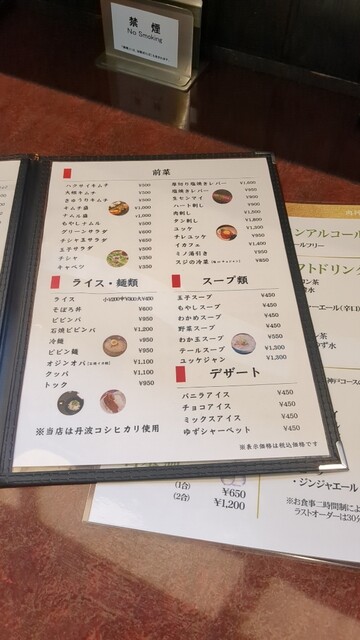 禁煙
No Smoking
前菜
ハクサイキムチ ¥500
大根キムチ ¥500
きゅうりキムチ ¥500
キムチ盛 ¥1,000
ナムル盛 ¥1,000
もやしナムル ¥500
グリーンサラダ ¥600
チシャ玉サラダ ¥650
玉子サラダ
チシャ ¥350
キャベツ ¥350
厚切り塩焼きレバー ¥1,000
塩焼きレバー ¥950
生センマイ
ハート刺し ¥900
肉刺し ¥1,500
タン刺し
ユッケ ¥1,300
チレユッケ ¥950
イカフェ ¥1,400
ミノ湯引き ¥950
スジの冷菜 ¥850
ライス・麺類
ライス 小¥200中¥300大¥400
そぼろ丼 ¥600
ビビンバ ¥950
石焼ビビンバ ¥1,200
冷麺 ¥950
ビビン麺 ¥950
オジンオバ ¥1,100
クッパ ¥1,100
トック ¥950
※当店は丹波コシヒカリ使用
スープ類
玉子スープ ¥450
もやしスープ ¥450
わかめスープ ¥450
野菜スープ ¥450
わか玉スープ ¥550
テールスープ ¥1,300
ユッケジャン ¥1,300
デザート
バニラアイス ¥450
チョコアイス ¥450
ミックスアイス ¥450
ゆずシャーベット ¥450
※表示価格は税込価格です
ンアルコール
ールフリー
フトドリン
(1合) ¥650
(2合) ¥1,200
・ジンジャエール
※お食事二時間制によ
ラストオーダーは30分